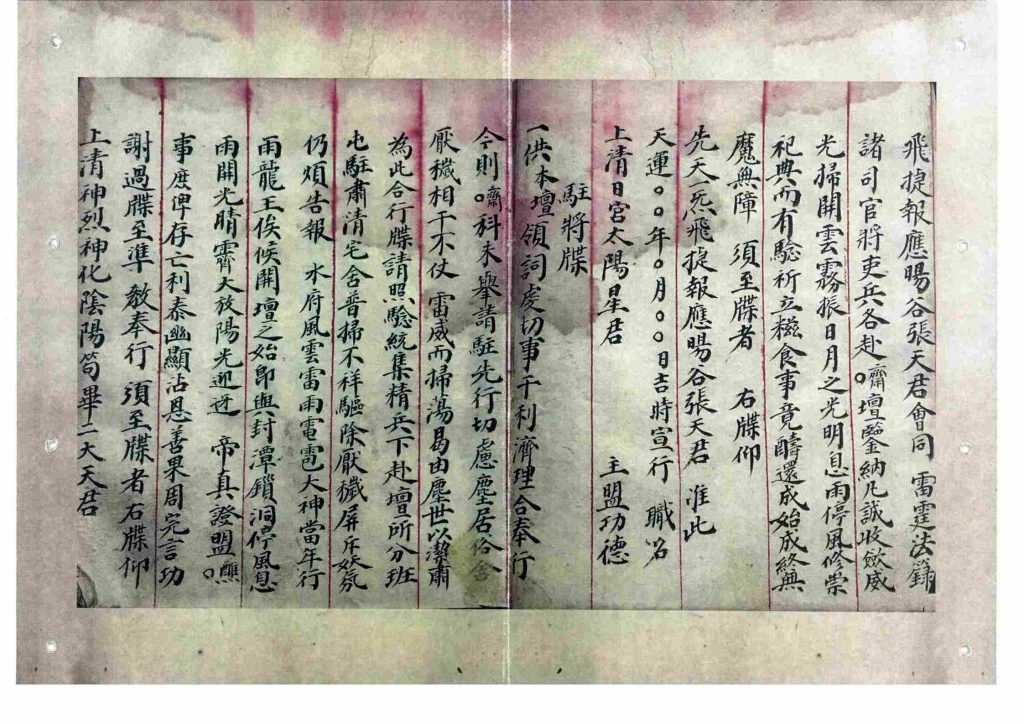 飛捷報應暘谷張天君會同　雷霆法籙
諸司官將吏兵各赴○齋壇鑒納凡誠收斂威
光掃開雲霧振日月之光明息雨停風修崇
祀典而有驗祈立糍食事竟酧還成始成終無
魔無障　須至牒者　右牒仰
先天一炁飛捷報應暘谷張天君　准此
天運○○年○月○○日吉時宣行　職名
上清日宮太陽星君　主盟功德
駐將牒
一供本壇領詞處切事干利濟理合奉行
今則○齋科未舉請駐先行切慮塵居俗舍
厭穢相干不仗　雷威而掃蕩曷由塵世以潔肅
為此合行牒請照驗統集精兵下赴壇所分班
屯駐肅清宅舍普掃不祥驅除厭穢屏斥妖氛
仍煩告報　水府風雲雷雨電雹大神當年行
雨龍王俟候開壇之始即與封潭鎖洞停風息
雨開光晴霽大放陽光迎迓　帝真證盟○醮
事庶俾存亡利泰幽顯沾恩善果周完言功
謝過牒至準　教奉行　須至牒者右牒仰
上清神烈神化陰陽苟畢二大天君